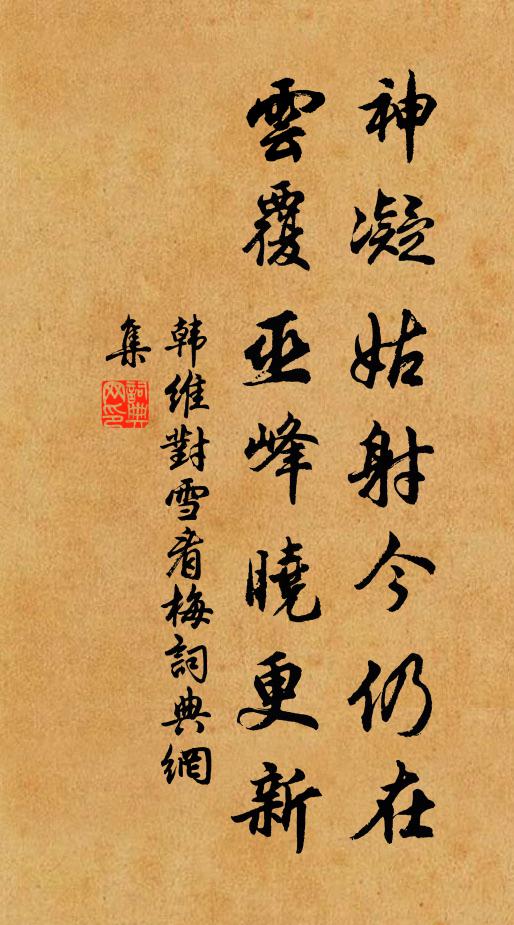 神凝姑射今仍在
雲覆巫峰曉更新
韩维對雪看梅詞典網
集
詞典網印